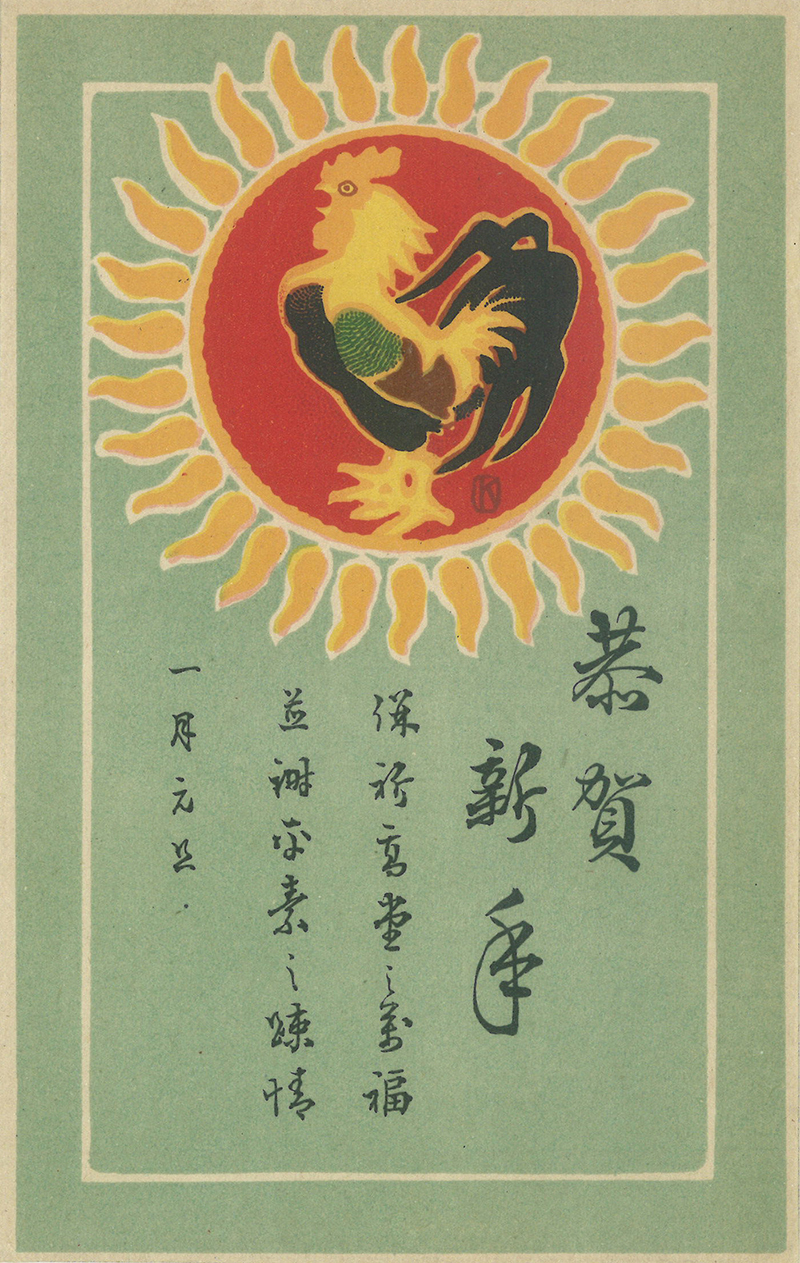 恭賀
新年
祈高堂之萬福
並謝平素之疎情
一月元旦
K